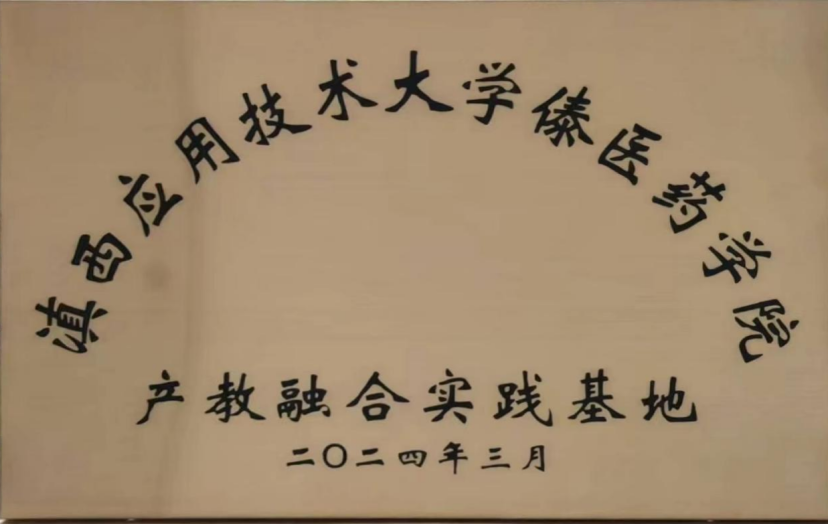 滇西应用技术大学傣医药学院
产教融合实践基地
二〇二四年三月